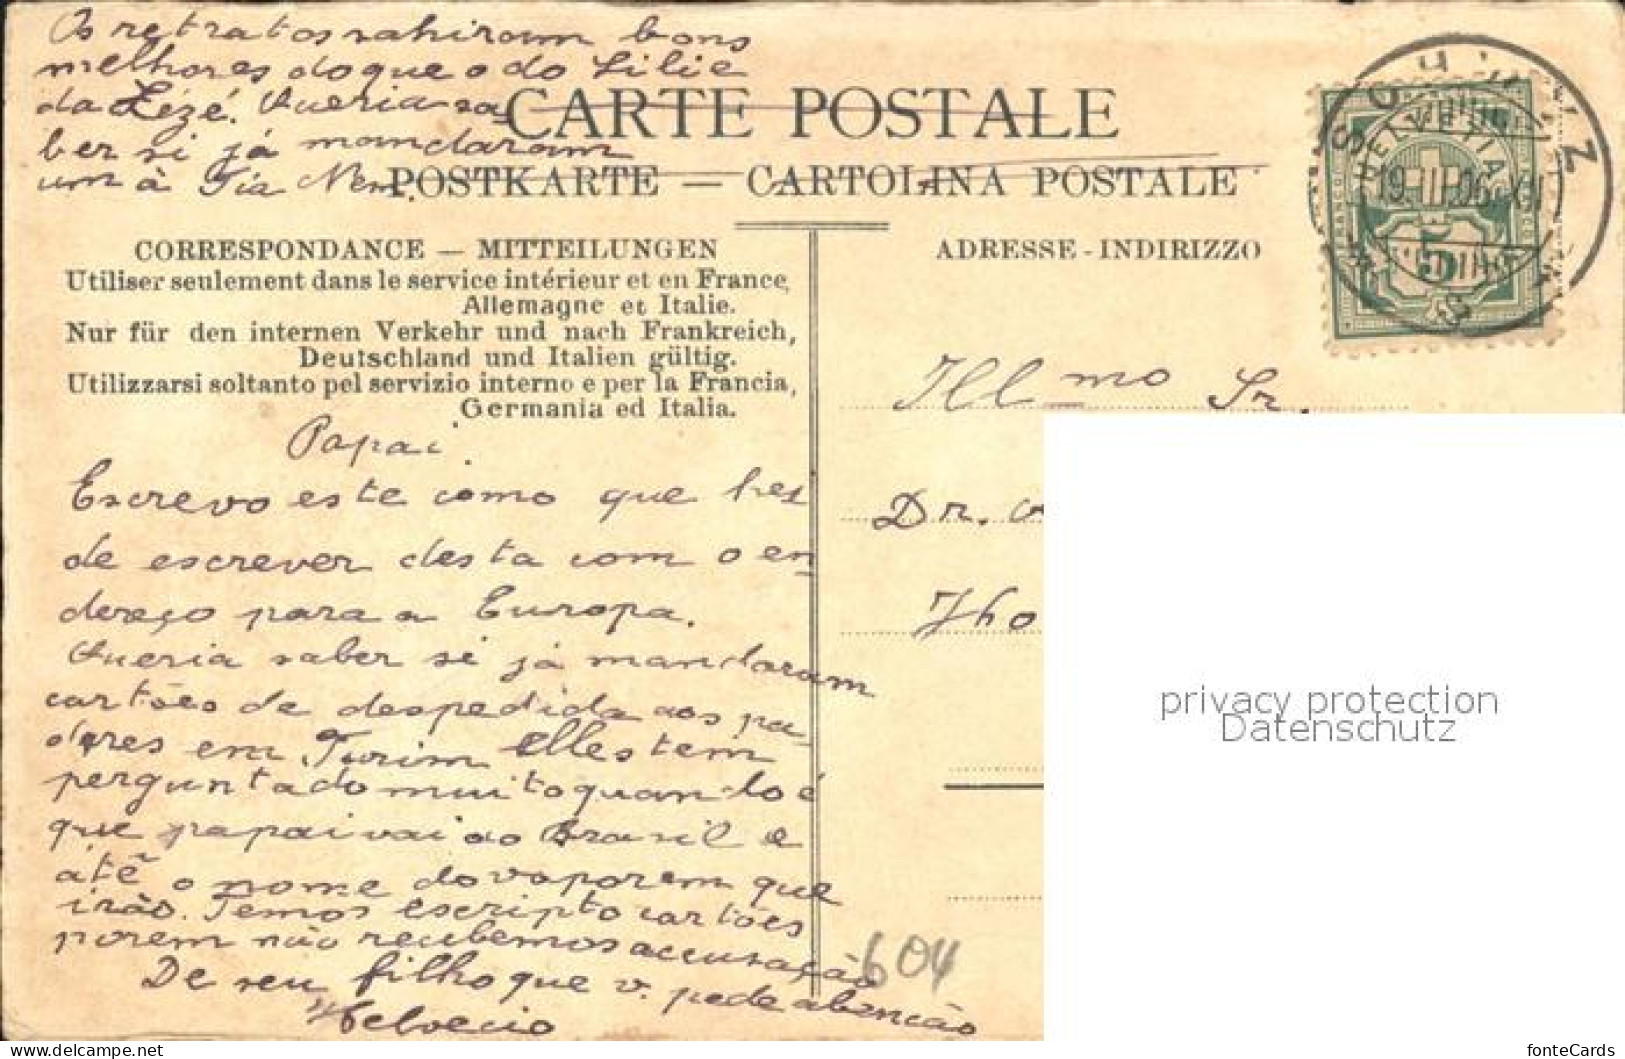 Os retratos sahiram bons
melhores do que o do Lilie
da Zézé. Queria sa-
ber si já mandaram
um à Tia Nem.
CARTE POSTALE
POSTKARTE — CARTOLINA POSTALE
CORRESPONDANCE — MITTEILUNGEN
Utiliser seulement dans le service intérieur et en France,
Allemagne et Italie.
Nur für den internen Verkehr und nach Frankreich,
Deutschland und Italien gültig.
Utilizzarsi soltanto pel servizio interno e per la Francia,
Germania ed Italia.
Papai.
Escrevo este como que hei
de escrever desta com o en-
dereço para a Europa.
Queria saber si já mandaram
cartões de despedida aos pa-
dres em Turim Elles tem
perguntado muito quando é
que papai vai ao Brasil e
até o nome do vapor em que
irão. Temos escripto cartões
porem não recebemos accusação
De seu filho que v. pede abencão
Helvecio
604
ADRESSE - INDIRIZZO
HELVETIA
FRANCO
5
19.III.06.XI
Ill mo Sr.
Dr.
Tho
privacy protection
Datenschutz
www.delcampe.net
fonteCards